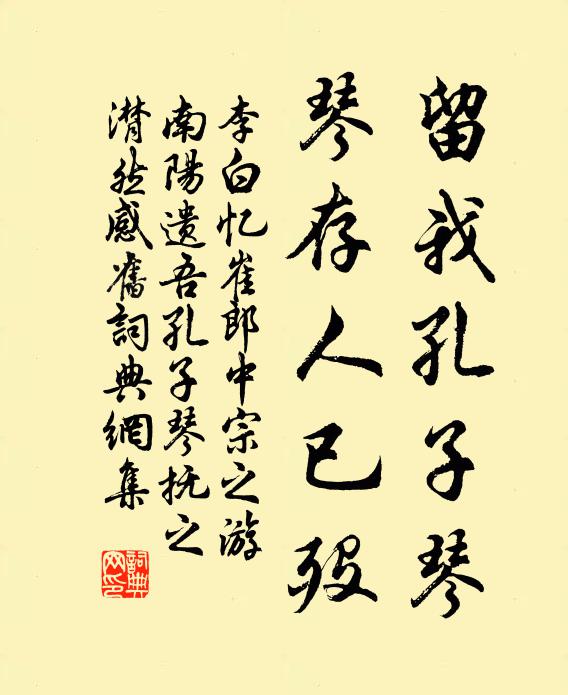 留我孔子琴
琴存人已殁
李白忆崔郎中宗之游
南陽遗吾孔子琴抚之
潸然感舊詞典網集
詞典
网印